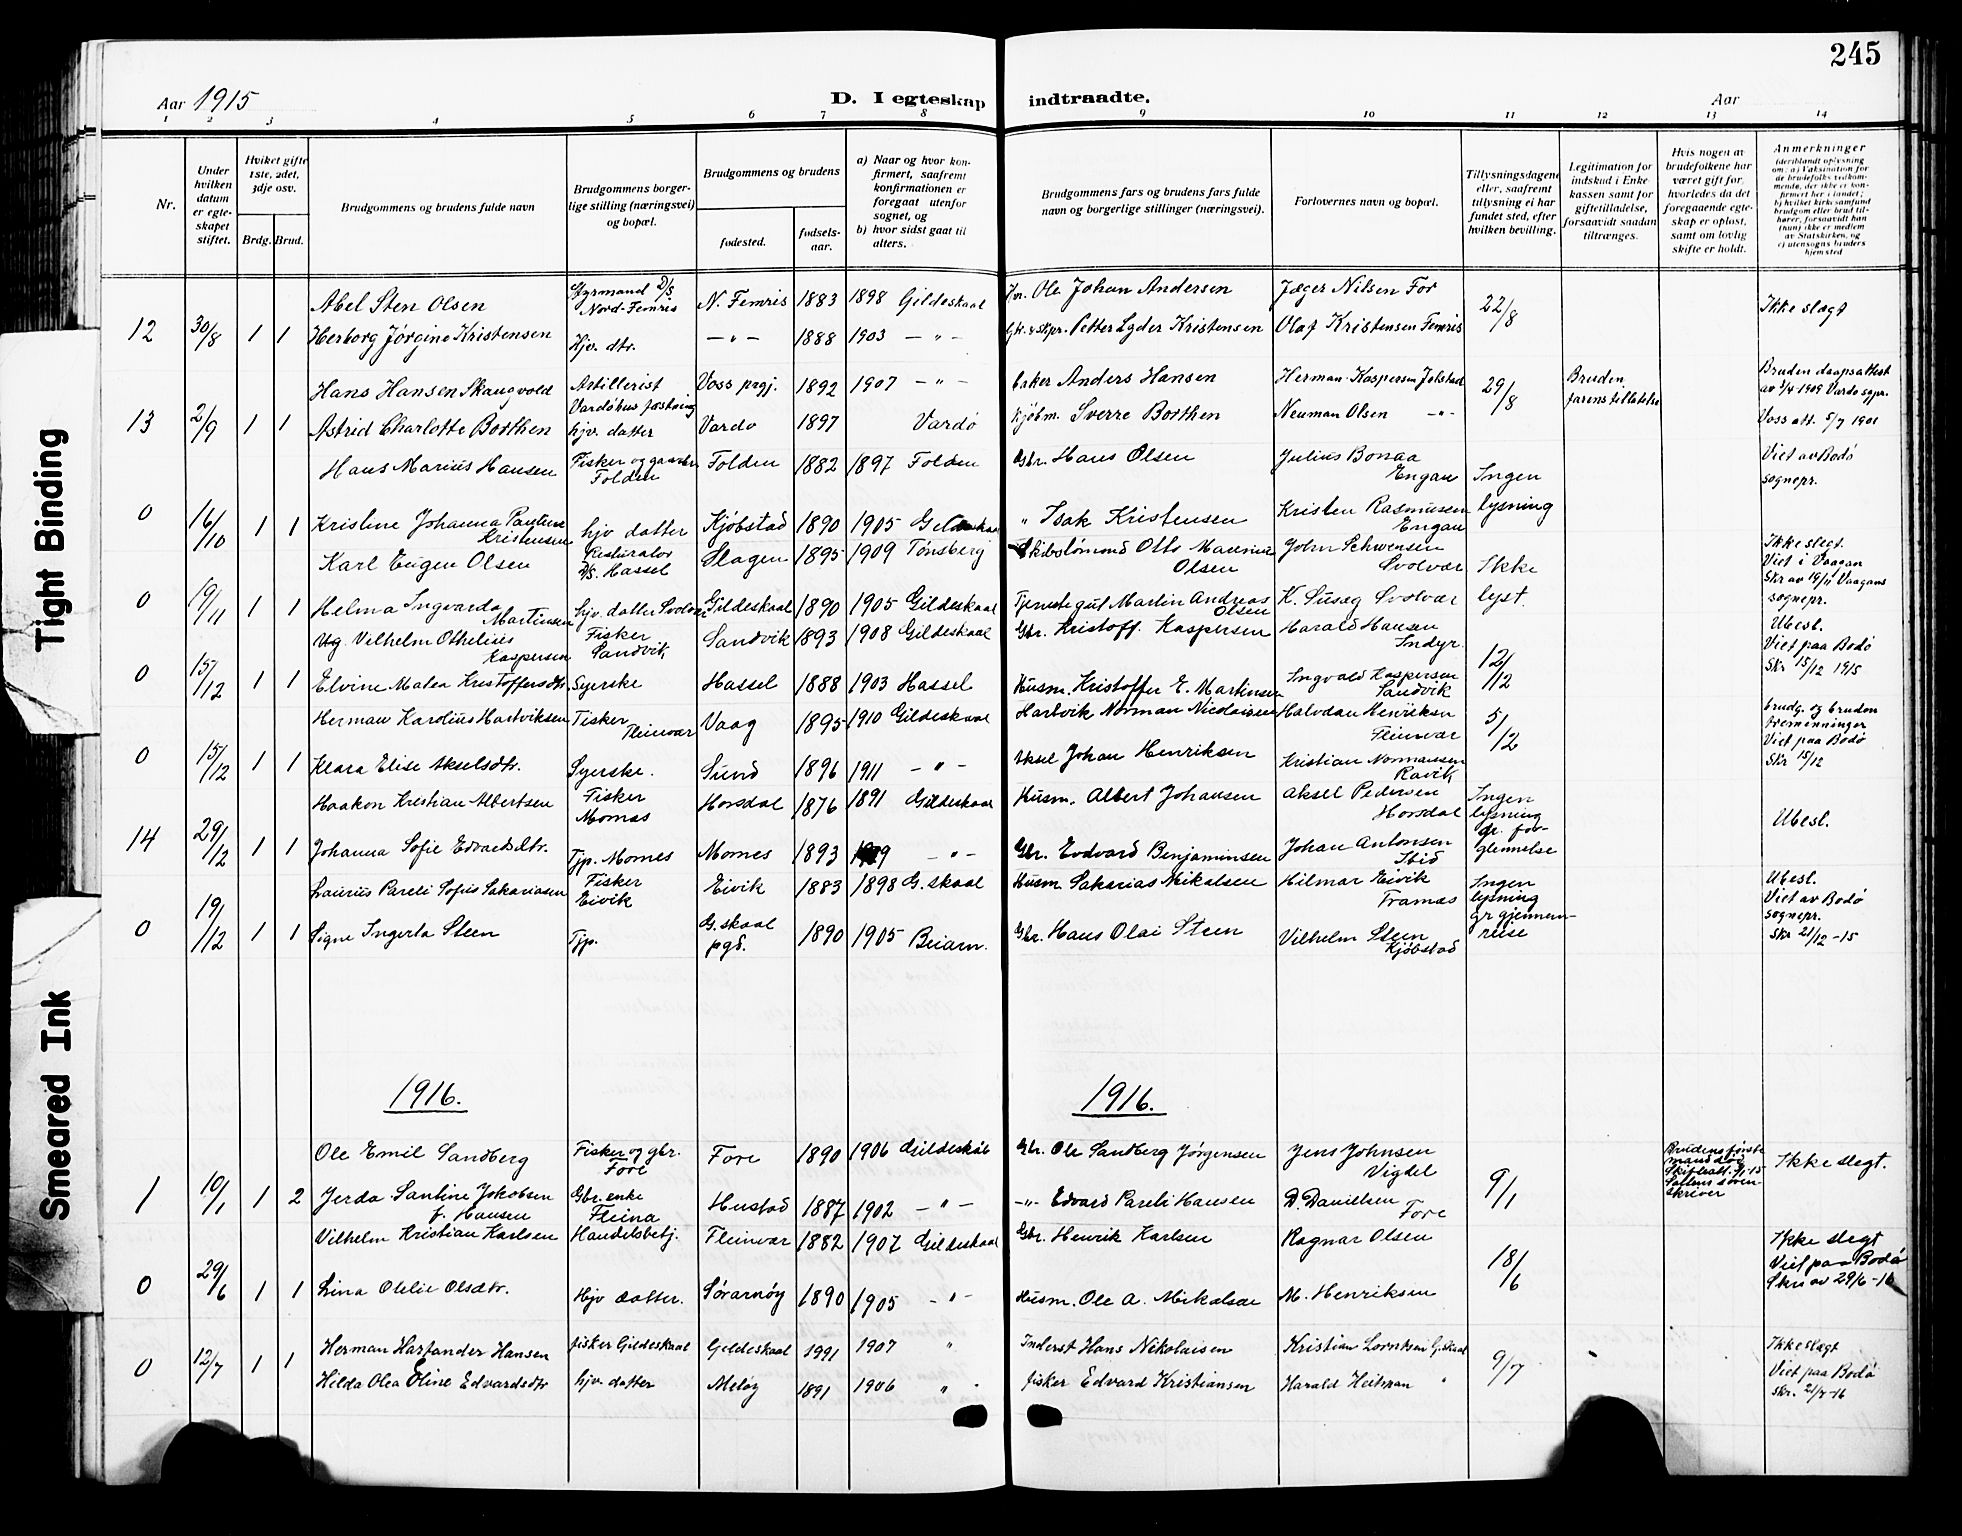 245
Aar 1915
D. I egteskap indtraadte.
Aar
1 2 3 4 5 6 7 8 9 10 11 12 13 14
Nr.
Under hvilken datum er egte-skapet stiftet.
Hviket gifte 1ste, 2det, 3dje osv.
Brdg. Brud.
Brudgommens og brudens fulde navn
Brudgommens borger-lige stilling (næringsvei) og bopæl.
Brudgommens og brudens
fødested.
fødsels-aar.
a) Naar og hvor kon-firmert, saafremt konfirmationen er foregaat utenfor sognet, og
b) hvor sidst gaat til alters.
Brudgommens fars og brudens fars fulde navn og borgerlige stillinger (næringsvei).
Forlovernes navn og bopæl.
Tillysningsdagene eller, saafremt tillysning ei har fundet sted, efter hvilken bevilling.
Legitimation for indskud i Enke-kassen samt for giftetilladelse, forsaavidt saadan tiltrænges.
Hvis nogen av brudefolkene har været gift før, hvorledes da det foregaaende egte-skap er opløst, samt om lovlig skifte er holdt.
Anmerkninger
Abel Sten Olsen Styrmand D/S Nord-Femris N. Femris 1883 1898 Gildeskaal Ole Johan Andersen Jæger Nilsen For 22/8 Ikke slegt
12 30/8 1 1 Herborg Jörgine Kristensen Hjv. dtr. — " — 1888 1903 — " — Petter Lyder Kristensen Olaf Kristensen Femris
Hans Hansen Skaugvold Artillerist Vardøhus fæstning Voss prgj. 1892 1907 — " — Anders Hansen Herman Kaspersen 29/8 Bruden farens tilladelse Bruden daapsattest
13 2/9 1 1 Astrid Charlotte Borthen hjv. datter Vardø 1897 Vardö Kjöbm. Sverre Borthen Neuman Olsen — " — Voss att. 5/7 1901
Hans Marius Hansen Fisker og gaardbr Folden Folden 1882 1897 Folden Gbr. Hans Olsen Julius Bonaa Engan Ingen lysning Viet av Bodö sognepr.
0 16/10 1 1 Kristine Johanna Pauline Kristensen hjv datter Kjöbstad 1890 1905 Gildeskaal " Isak Kristensen Kristen Rasmussen Engan
Karl Eugen Olsen D/S. Hassel Slagen 1895 1909 Tönsberg Otto Olsen John Schwensen Svolvær Ikke lyst. Ikke slegt. Viet i Vaagan Skr av 19/11 Vaagans sognepr.
0 19/11 1 1 Helma Ingvarda Martinsen hjv datter Svolvær Gildeskaal 1890 1905 Gildeskaal Tjenestegut Martin Andreas Olsen K. Svolvær
Ug. Vilhelm Othelius Kaspersen Fisker Sandvik Sandvik 1893 1908 Gildeskaal Gbr. Kristoff. Kaspersen Harald Hansen Indyr. 12/12 Ubesl. Viet paa Bodö Skr 15/12 1915
0 15/12 1 1 Elvine Malea Kristoffersdtr. Syerske Hassel 1888 1903 Hassel Husm. Kristoffer E. Martinsen Ingvald Kaspersen Sandvik
Herman Karolius Hartviksen Fisker Fleinvær Vaag 1895 1910 Gildeskaal Hartvik Norman Nicolaisen Halvdan Henriksen Fleinvær 5/12 brudg. og bruden tremenninger Viet paa Bodö Skr 15/12
0 15/12 1 1 Klara Elise Akselsdtr. Syerske. Sund 1896 1911 — " — Aksel Johan Henriksen Kristian Normansen Ravik
Haakon Kristian Albertsen Fisker Mornes Horsdal 1876 1891 Gildeskaal Husm. Albert Johansen Aksel Pedersen Horsdal Ingen lysning gr. for-glemmelse Ubesl.
14 29/12 1 1 Johanna Sofie Edvardsdtr. Tjp. Mornes Mornes 1893 — " — Gbr. Edvard Benjaminsen Johan Antonsen
Laurits Pareli Sofus Sakariasen Fisker Eivik Eivik 1883 1898 G. skaal Husm Sakarias Mikalsen Hilmar Eivik Framæs Ingen lysning gr gjennem-reise Ubesl. Viet av Bodö sognepr. Skr 21/12-15
0 19/12 1 1 Signe Ingerta Steen Tjp. G. skaal pgd. 1890 1905 Beiarn. Gbr. Hans Olai Steen Vilhelm Steen Kjöbstad
1916. 1916.
Ole Emil Sandberg Fisker og gbr. Fore Fore 1890 1906 Gildeskål Gbr. Ole Sandberg Jörgensen Jens Johnsen Vigdel 9/1 Brudens første mand død Ikke slegt.
1 10/1 1 2 Jerda Santine Jokobsen f. Hansen Gbr. enke Fleina Hustad 1887 1902 — " — — " — Edvard Pareli Hansen D. Danielsen Fore
Vilhelm Kristian Karlsen Handelsbetj. Fleinvær 1882 1907 Gildeskaal Gbr. Henrik Karlsen Ragnar Olsen 18/6 Ikke slegt Viet paa Bodö Skr av 29/6-16
0 29/6 1 1 Lina Otelie Olsdtr. Hjv datter. Sörarnöy 1890 1905 — " — Husm. Ole A. Mikalsen M. Henriksen
Herman Hartander Hansen fisker Gildeskaal Gildeskaal 1991 1907 " Inderst Hans Nikolaisen Kristian Lorntsen G. skaal 9/7 Ikke slegt Viet paa Bodö skr. 21/7-16
0 12/7 1 1 Hilda Olea Eline Edvardsdtr hjv datter Meløy 1891 1906 " fisker Edvard Kristiansen Harald Heitman "
Tight Binding
Smeared Ink